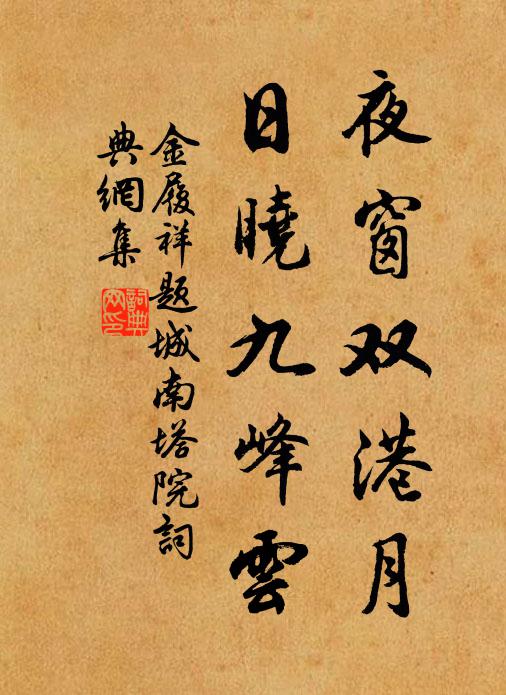 夜窗双港月
日曉九峰雲
金履祥题城南塔院詞
典網集
詞典网印